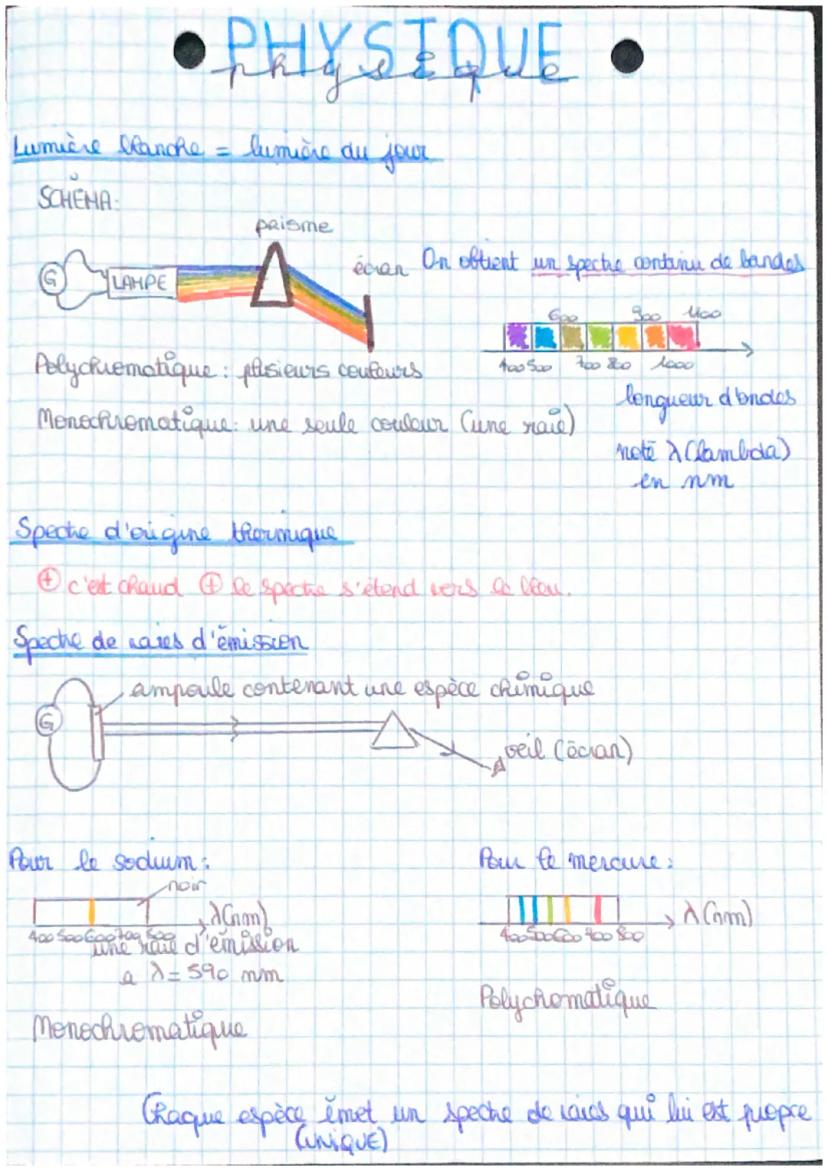 PHYSIQUE
physique
Lumière blanche = lumière du jour
SCHÉMA:
prisme
G
LAMPE
écran
On obtient un spectre continu de bandes
600 900 1100
400 500 700 800 1000
Polychromatique : plusieurs couleurs
longueur d'ondes
Monochromatique: une seule couleur (une raie)
noté λ (lambda)
en nm
Spectre d'origine thermique
+ c'est chaud + le spectre s'étend vers le bleu.
Spectre de raies d'émission
ampoule contenant une espèce chimique
G
oeil (écran)
Pour le sodium :
Pour le mercure :
noir
λ(nm)
λ (nm)
400 500 600 700 800
400 500 600 700 800
une raie d'émission
a λ = 590 nm
Polychomatique
Monochromatique
Chaque espèce émet un spectre de raies qui lui est propre
(UNIQUE)